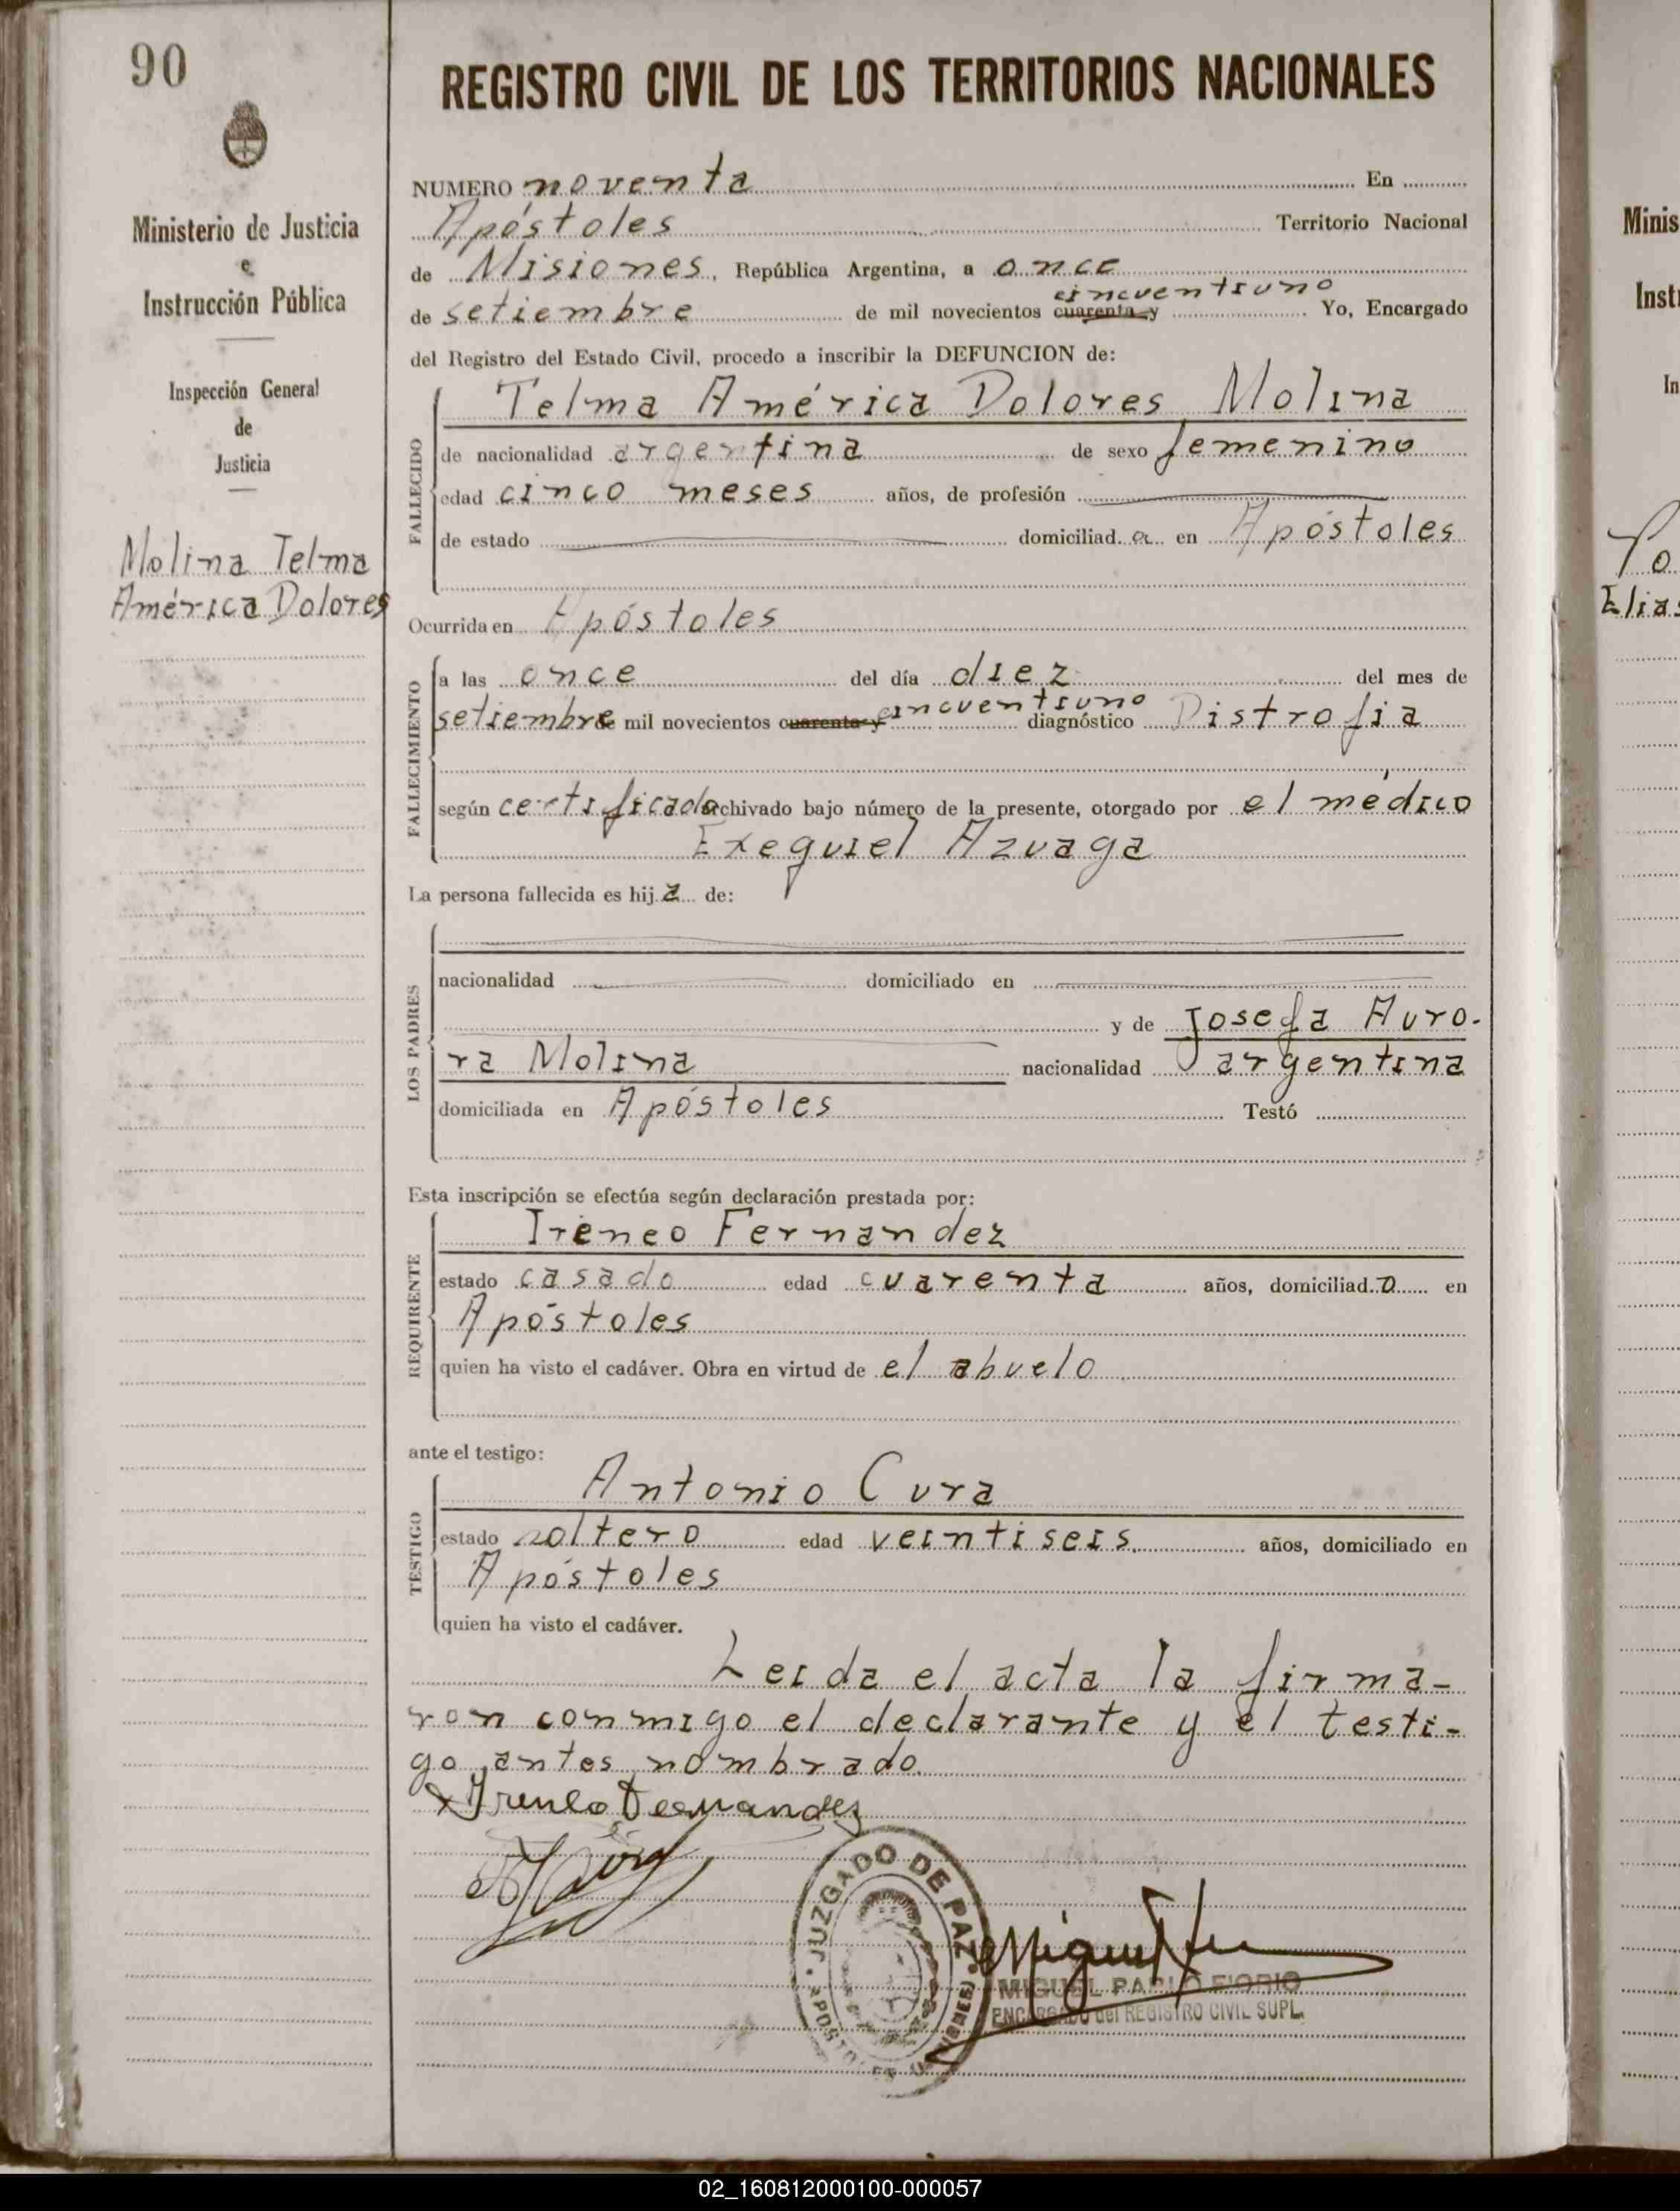 90
Ministerio de Justicia
e
Instrucción Pública
Inspección General
de
Justicia
Molina Telma
América Dolores
REGISTRO CIVIL DE LOS TERRITORIOS NACIONALES
NUMERO noventa En
Apóstoles Territorio Nacional
de Misiones, República Argentina, a once
cincuentiuno
de setiembre de mil novecientos cuarenta y Yo, Encargado
del Registro del Estado Civil, procedo a inscribir la DEFUNCION de:
FALLECIDO
Telma América Dolores Molina
de nacionalidad argentina de sexo femenino
edad cinco meses años, de profesión
de estado domiciliad a en Apóstoles
Ocurrida en Apóstoles
FALLECIMIENTO
a las once del día diez del mes de
setiembre de mil novecientos cuarenta y cincuentiuno diagnóstico Distrofia
según certificado archivado bajo número de la presente, otorgado por el médico
Exequiel Azuaga
La persona fallecida es hija de:
LOS PADRES
nacionalidad domiciliado en
y de Josefa Auro-
ra Molina nacionalidad argentina
domiciliada en Apóstoles Testó
Esta inscripción se efectúa según declaración prestada por:
REQUIRENTE
Ireneo Fernandez
estado casado edad cuarenta años, domiciliado en
Apóstoles
quien ha visto el cadáver. Obra en virtud de el abuelo
ante el testigo:
TESTIGO
Antonio Cura
estado soltero edad veintiseis. años, domiciliado en
Apóstoles
quien ha visto el cadáver.
Leida el acta la firma-
ron conmigo el declarante y el testi-
go antes nombrado.
x Ireneo Fernandez
JUZGADO DE PAZ
APOSTOLES (MISIONES)
MIGUEL PABLO FIORIO
ENCARGADO del REGISTRO CIVIL SUPL.
Minis
Inst
In
Elias
02_160812000100-000057